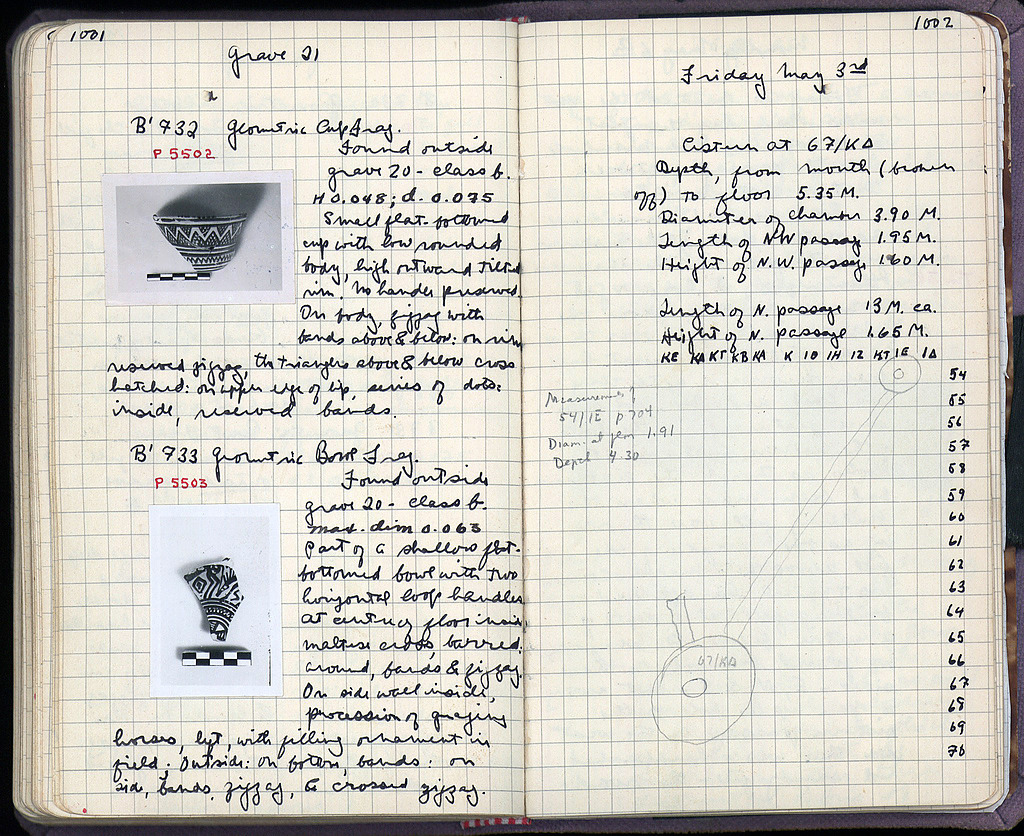 1001
Grave 21
B' 732 Geometric Cup frag.
P 5502
Found outside
grave 20 - class b.
H 0.048; d. 0.075
Small flat-bottomed
cup with low rounded
body, high outward tilted
rim. No handles preserved.
On body, zigzag with
bands above & below: on rim
reserved zigzag, the triangles above & below cross
hatched: on upper edge of lip, series of dots:
inside, reserved bands.
B' 733 Geometric Bowl Frag.
P 5503
Found outside
grave 20 - class b.
max. dim 0.063
Part of a shallow flat-
bottomed bowl with two
horizontal loop handles
At center of floor inside
maltese cross, barred.
around, bands & zigzag.
On side wall inside,
procession of grazing
horses, left, with filling ornament in
field. Outside: on bottom, bands: on
side, bands, zigzag, & crossed zigzag.
1002
Friday May 3rd
Cistern at 67/ΚΔ
Depth, from mouth (broken
off) to floor 5.35 M.
Diameter of chamber 3.90 M.
Length of NW passage 1.95 M.
Height of N.W. passage 1.60 M.
Length of N. passage 13 M. ca.
Height of N. passage 1.65 M.
ΚΕ ΚΔ ΚΓ ΚΒ ΚΑ Κ ΙΘ ΙΗ ΙΖ ΙΕ ΙΔ
Measurements of
54/ΙΕ p 704
Diam. at floor 1.91
Depth 4.30
54
55
56
57
58
59
60
61
62
63
64
65
67/ΚΔ
66
67
68
69
70